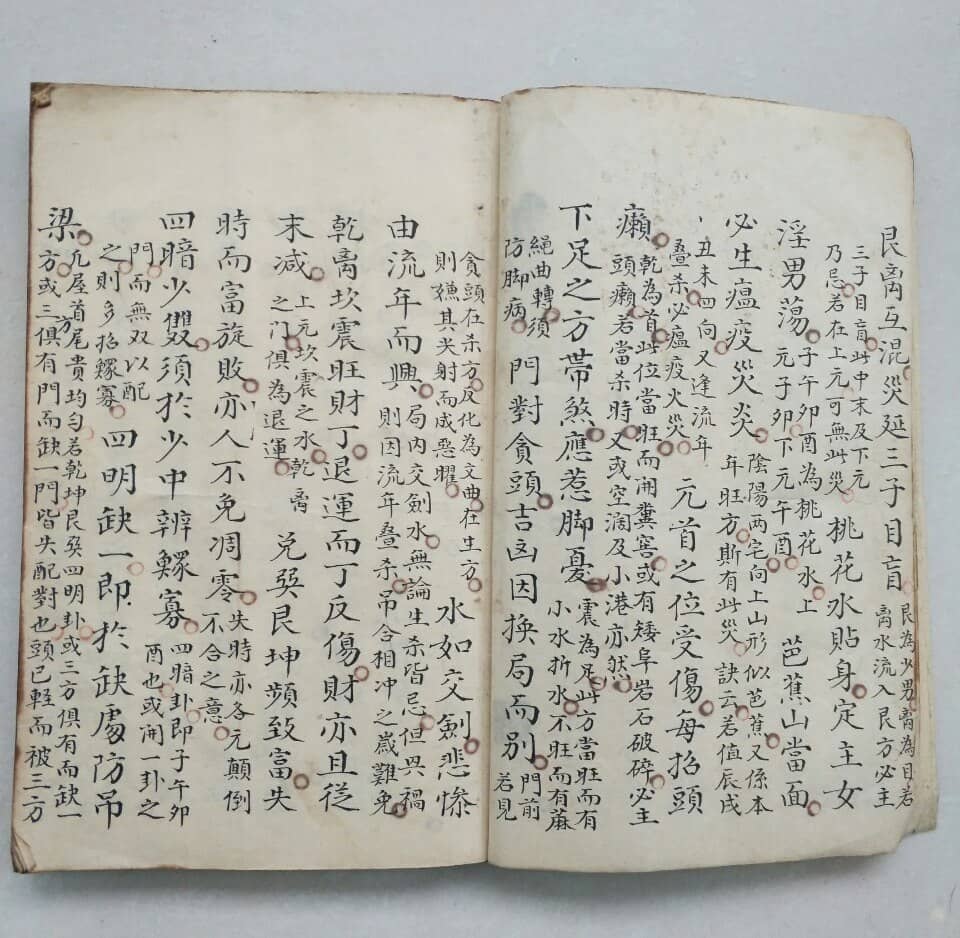 艮离互混災延三子目盲 艮為少男离為目若
三子目盲此中末及下元 离水流入艮方必主
乃忌若在上元可無此災 桃花水貼身定主女
淫男蕩 子午卯酉為桃花水上
元子卯下元午酉 芭蕉山當面
必生瘟疫災炎 陰陽兩宅向上山形似芭蕉又係本
年旺方斯有此災 訣云若值辰戌
丑未四向又逢流年
叠杀必瘟疫火災 元首之位受傷每招頭
癩 乾為首此位當旺而開糞窖或有矮阜岩石破碎必主
頭癩若當杀時又或空濶及小港亦然
下足之方帶煞應惹脚憂 震為足此方當旺而有
小水折水不旺而有蔴
繩曲轉須
防脚病 門對貪頭吉凶因换局而别 門前
若見
貪頭在杀方反化為文曲在生方
則 其尖射而成惡曜 水如交劍悲慘
由流年而興 局内交劍水無論生杀皆忌但畏禍
則因流年叠杀吊合相冲之歲難免
乾离坎震旺財丁退運而丁反傷財亦且從
末减 上元坎震之水乾离
之门俱為退運 兑巽艮坤頻致富失
時而富旋敗亦人不免凋零 失時亦各元顛倒
不合之意
四暗少雙須於少中辨鰥寡 四暗卦即子午卯
酉也或開一卦之
門而無双以配
之則多招鰥寡 四明缺一即於缺處防吊
梁 凢屋首尾贵均匀若乾坤艮巽四明卦或三方俱有而缺一
方或三方俱有門而缺一門皆失配對也頭已輕而被三方